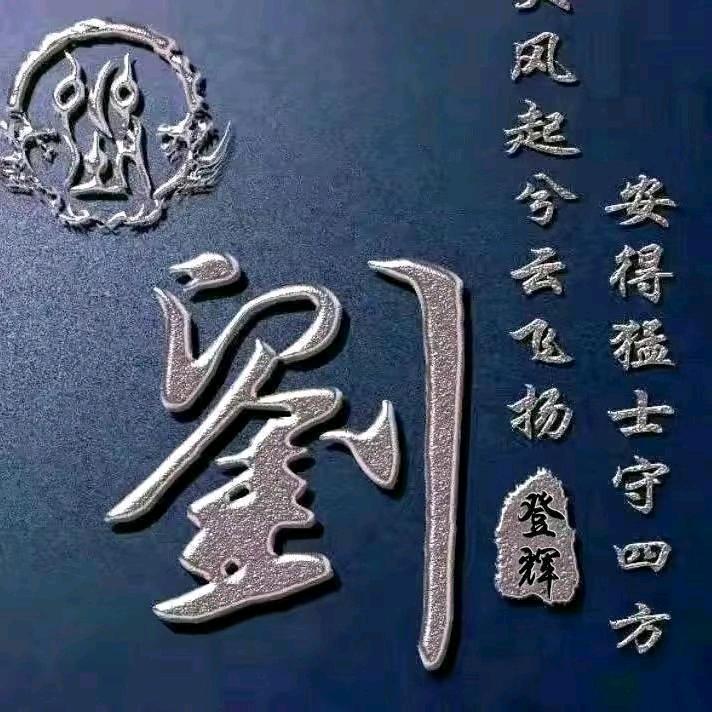 劉
风起兮云飞扬
安得猛士守四方
登辉